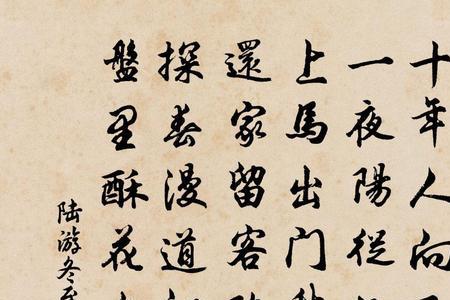 十年人向
一夜陽從
上馬出門
還家留客
探春漫道
盤里酥花
陆游冬